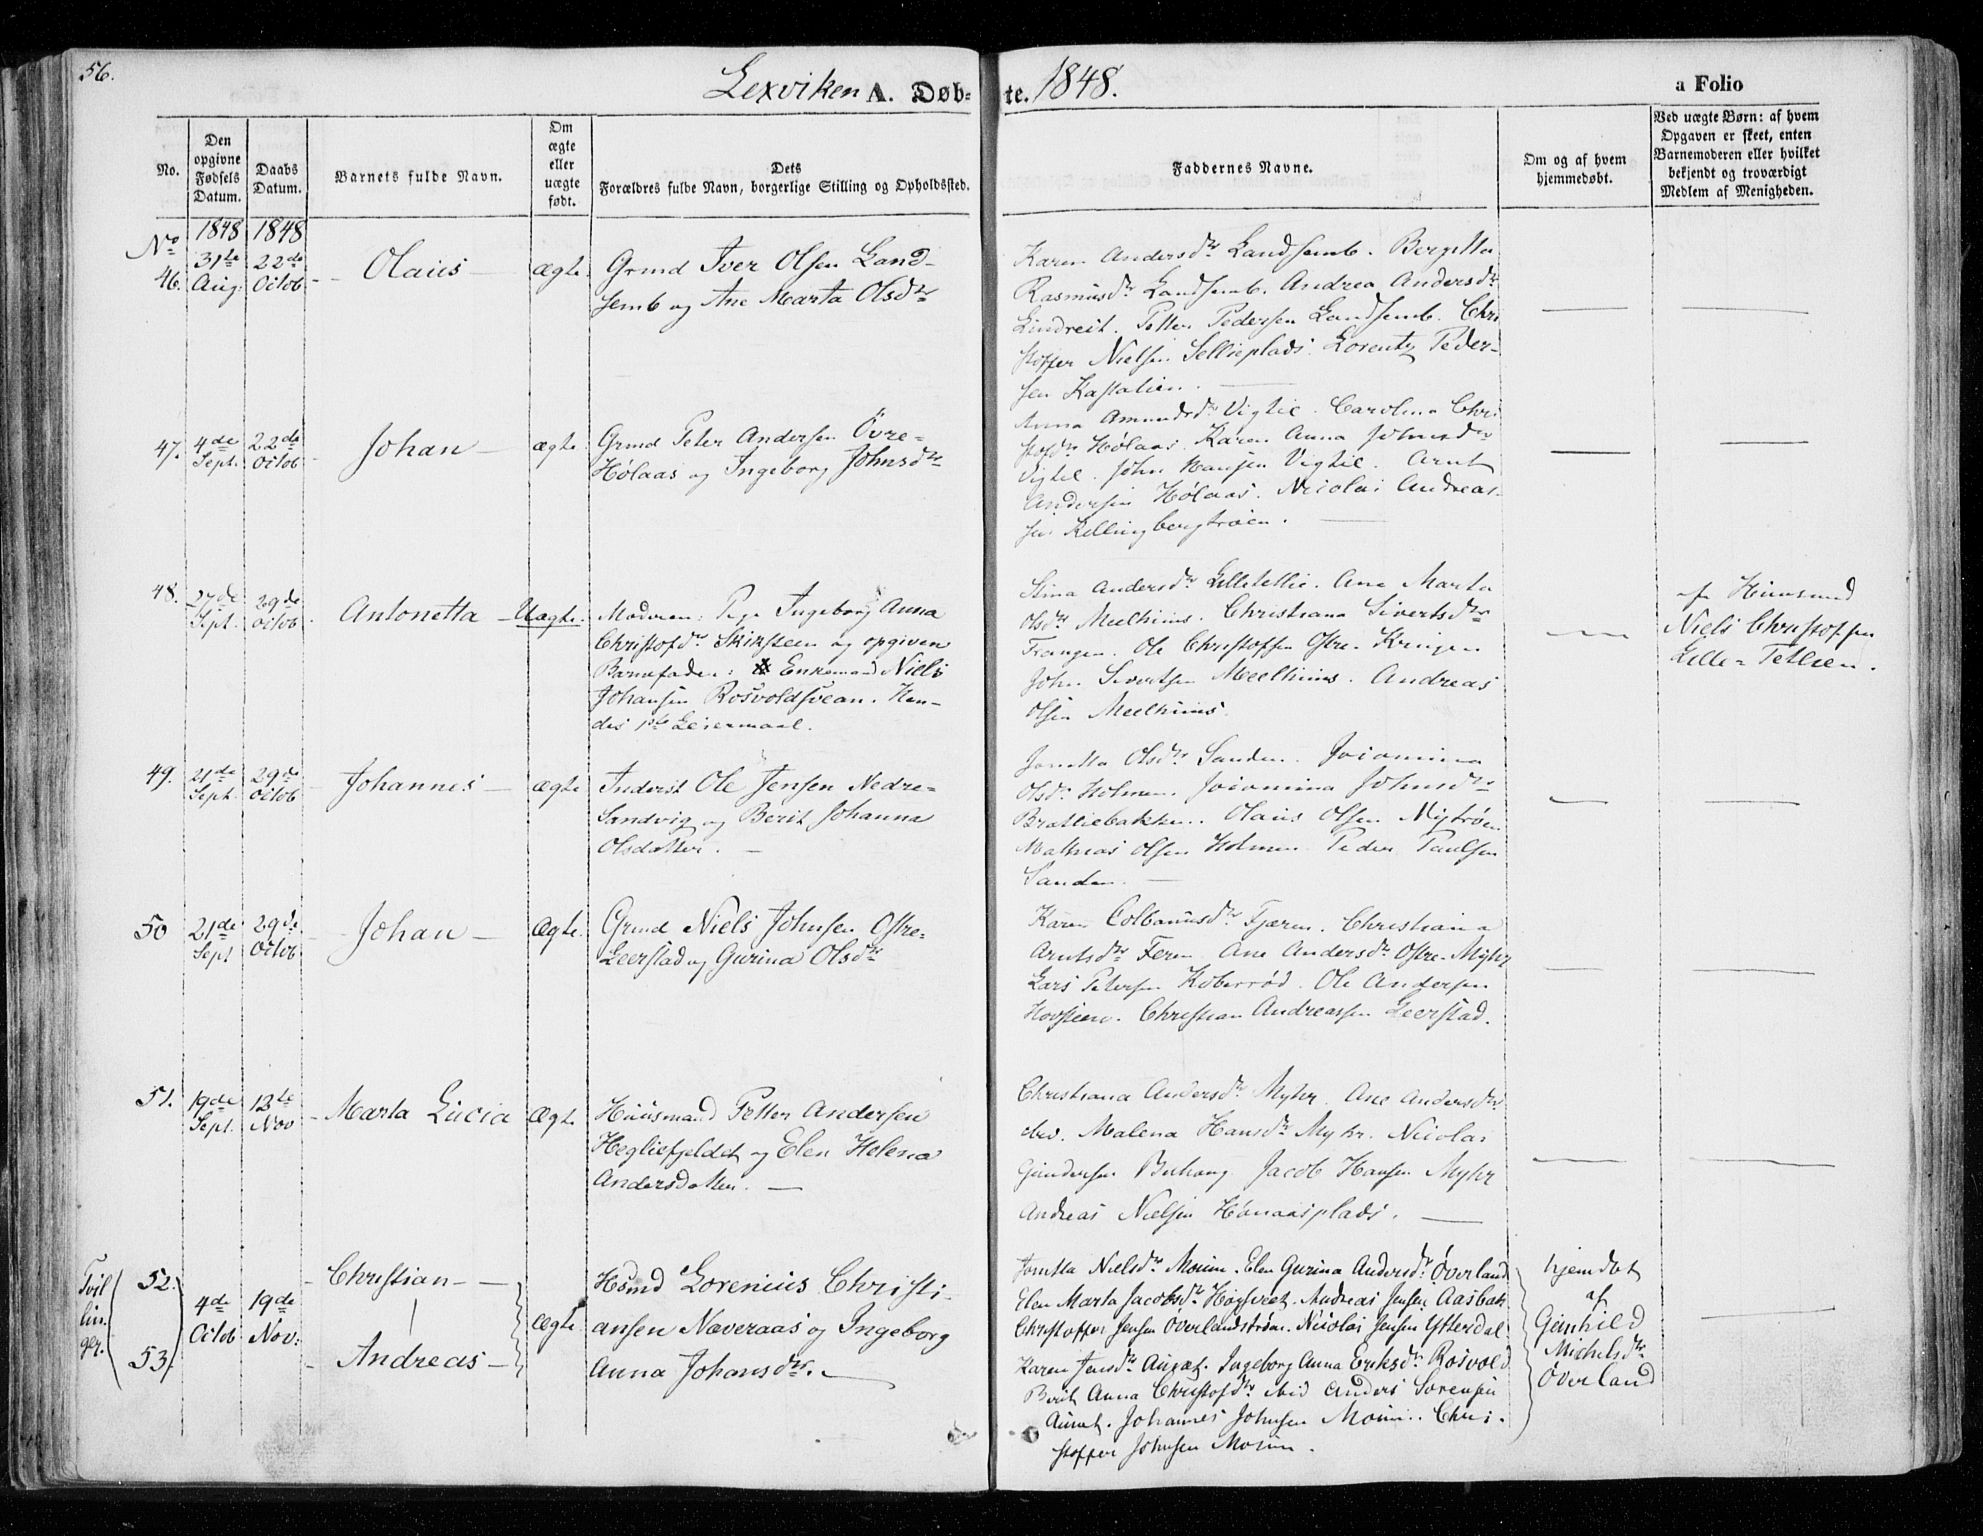 56.
Lexviken A. Døb= te. 1848.
a Folio
No.
Den opgivne Fødsels Datum.
Daabs Datum.
Barnets fulde Navn.
Om ægte eller uægte født.
Dets
Forældres fulde Navn, borgerlige Stilling og Opholdssted.
Faddernes Navne.
Om og af hvem hjemmedøbt.
Ved uægte Børn: af hvem Opgaven er skeet, enten Barnemoderen eller hvilket bekjendt og troværdigt Medlem af Menigheden.
No 1848 1848
46. 31te Aug. 22de Octob. Olaus ægte.
Grmd Iver Olsen Land-
semb og Ane Marta Olsdtr
Karen Andersdtr Landsemb. Bergitta
Rasmusdtr Landsemb. Andrea Andersdtr
Lindreit. Petter Pedersen Landsemb. Chri
stoffer Nielsen Sellieplads. Lorentz Peder-
sen Kastalien.
47. 4de Sept. 22de Octob Johan ægte.
Grmd Peter Andersen Övre=
Hölaas og Ingeborg Johnsdtr
Anna Amundsdtr Vigtil. Carolina Chri
stofdtr Hölaas. Karen Anna Johnsdtr
Vigtil. John Hansen Vigtil. Arnt
Andersen Hölaas. Nicolai Andreas-
sen Killingbergtröen.
48. 27de Sept. 29de Octob. Antonetta Uægte.
Moderen: Pige Ingeborg Anna
Christofdtr Skirsteen og opgiven
Barnefader: Enkemand Niels
Johansen Rosvoldsvean. Hen-
des 1ste Leiermaal.
Stina Andersdtr Lilletellie. Ane Marta
Olsdtr Meelhuus. Christiana Sivertsdtr
Frangen. Ole Christoffsen Ostre Kringen
John Sivertsen Meelhuus. Andreas
Olsen Meelhuus.
af Huusmand
Niels Christoffsen
Lille=Tellien.
49. 21de Sept. 29de Octob Johannes ægte
Inderst Ole Jensen Nedre=
Sandvig og Berit Johanna
Olsdatter.
Jonetta Olsdtr Sanden. Joiomina
Olsdtr Holmen. Joiomina Johnsdtr
Bratliebakken. Olaus Olsen Nytrön
Mathias Olsen Holmen. Peder Paulsen
Sanden.
50 21de Sept 29de Octob Johan Ægte.
Grmd Niels Johnsen Ostre=
Leerstad og Gurina Olsdtr
Karen Colbanusdtr Fjæren. Christiana
Arntsdtr Feren. Ane Andersdtr Ostre-Myhr
Lars Petersen Koberröd. Ole Andersen
Hovsteen. Christian Andreassen Leerstad.
51. 19de Sept. 12te Nov Marta Lucia Ægte
Huusmand Petter Andersen
Hegliefjeldet og Elen Helena
Andersdatter.
Christiana Andersdtr Myhr. Ane Andersdtr
ibid. Malena Hansdtr Myhr. Nicolai
Gundersen Buhaug. Jacob Hansen Myhr
Andreas Nielsen Hönaasplads.
Tvil lin- ger. 52. 53. 4de Octob 19de Nov: Christian Andreas ægte
Hsmd Lorenius Christi-
ansen Naveraas og Ingeborg
Anna Johansdtr.
Jonetta Nielsdtr Moum. Elen Gurina Andersdtr Överland
Elen Marta Jacobsdtr Hogsveet. Andreas Jensen Aasbak
Christoffer Jensen Överlandströen. Nicolai Jensen Ytterdal
Karen Jensdtr Aunet. Ingeborg Anna Eriksdtr Rosvold
Berit Anna Christofdtr ibid Anders Sorensen
Aunet. Johannes Johnsen Moum. Chri-
stoffer Johnsen Moum.
hjemdöbt
af
Gunhild
Michelsdtr
Överland